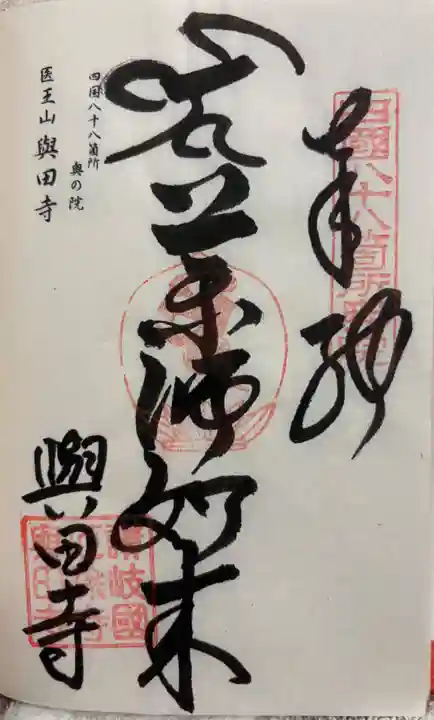 四國八十八箇所
奉納
薬師如来
與田寺
讃岐國
與田寺
四国八十八箇所
奥の院
医王山 與田寺